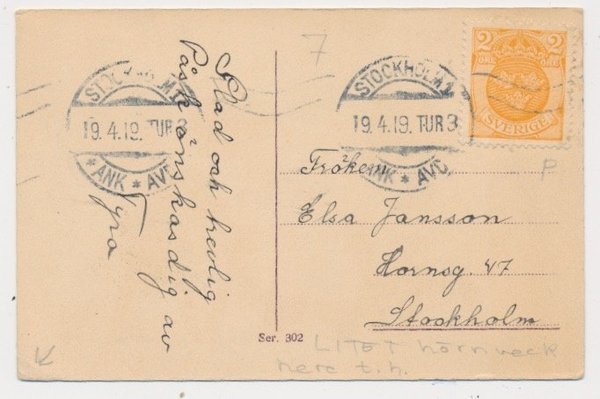 Glad och helig
Påsk önskas dig av
Tyra
7
STOCKHOLM
19.4.19. TUR
* ANK * AVG.
STOCKHOLM
19.4.19. TUR 3
* ANK * AVG.
2 2
ÖRE ÖRE
SVERIGE
P
Fröken
Elsa Jansson
Hornsg. 47
Stockholm
Ser. 302
LITET hörnveck
nere t.h.